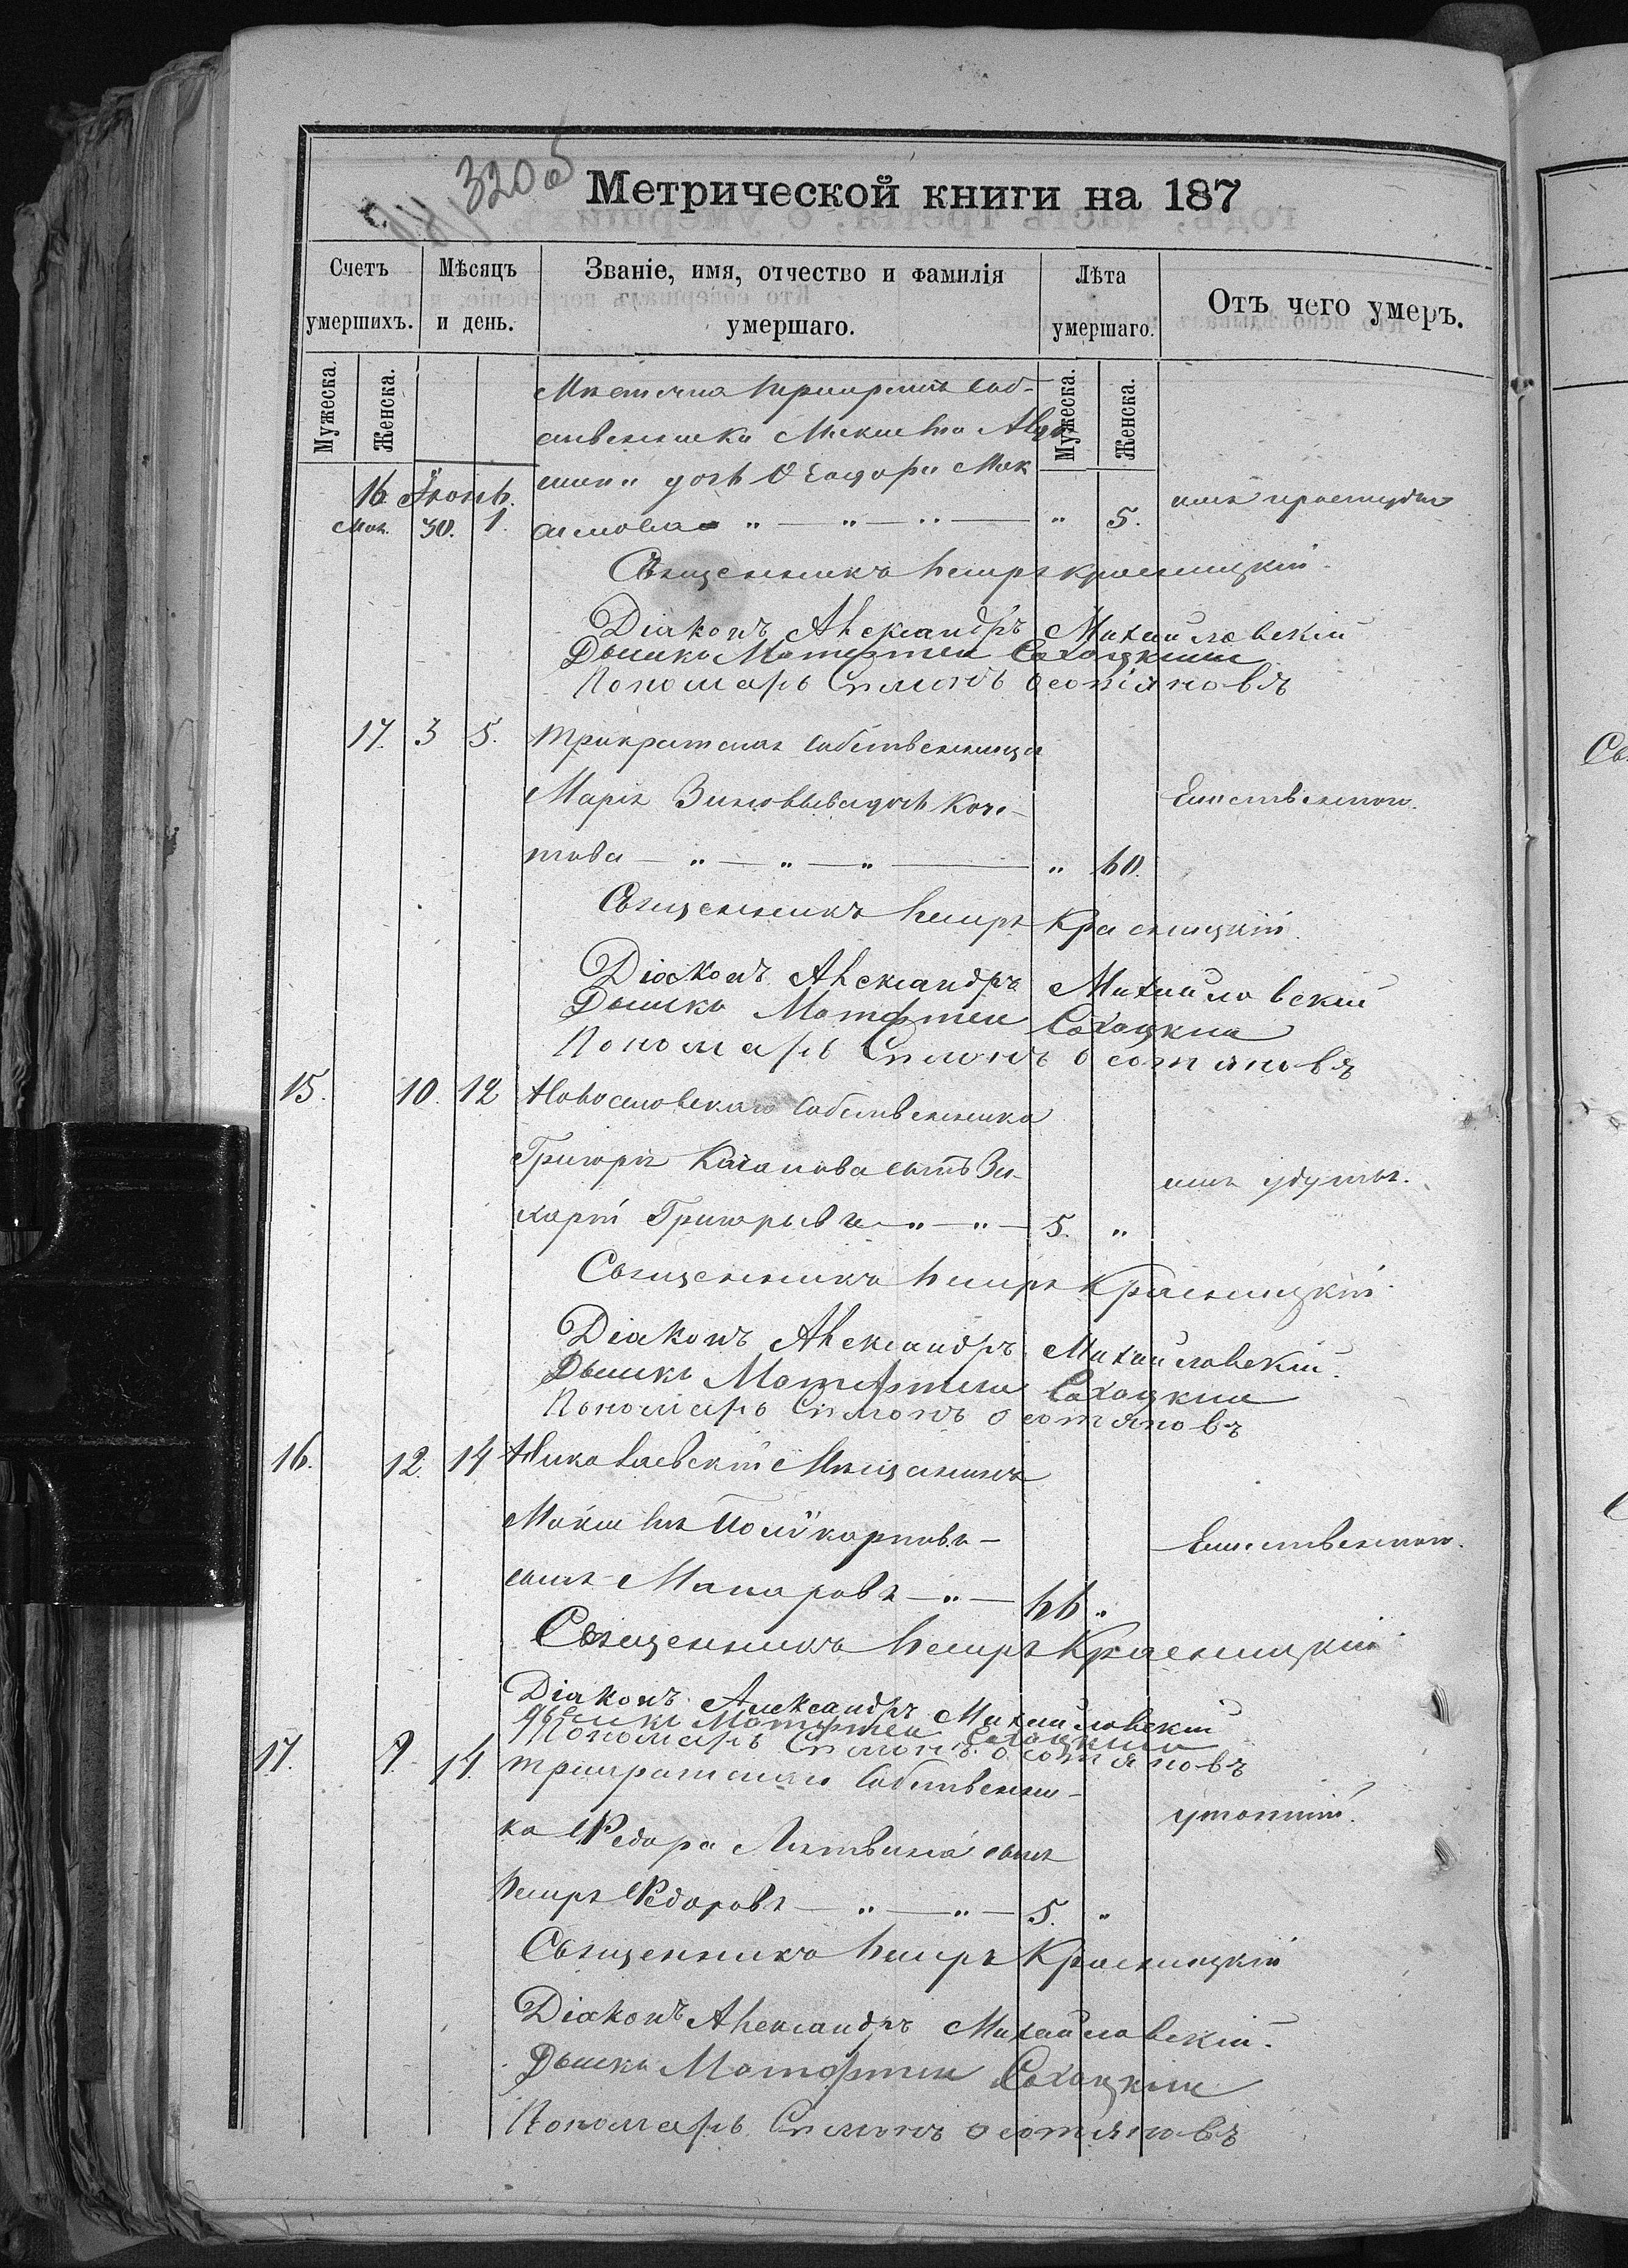 320 об
Метрической книги на 187
Счетъ умершихъ.
Мѣсяцъ и день.
Званіе, имя, отчество и фамилія умершаго.
Лѣта умершаго.
Отъ чего умеръ.
Мужеска.
Женска.
Мужеска.
Женска.
Мѣстечка Трикратъ соб-
ственника Максима
дочь Ѳеодора Мак
16 Іюнь. отъ простуды
Мая. 30. 1. симова — " — " — " — " 5.
Священникъ Петръ Красницкій.
Діаконъ Александръ Михайловскій
Дьячкъ Матфтей Сахацкій
Пономарь Симонъ Осотяновъ
17. 3 5. Трикратская собственница
Марія Зиновьева дочь Коче- Естественною.
това — " — " — " — " 60.
Священникъ Петръ Красницкій
Діаконъ Александръ Михайловскій
Дьячкъ Матфтей Сахацкій
Пономарь Симонъ Осотяновъ
15. 10. 12 Новоселовскаго собственника
Григорія сынъ За- отъ удушья.
харій Григорьевъ — " — " — 5. "
Священникъ Петръ Красницкій
Діаконъ Александръ Михайловскій.
Дьячкъ Матфтей Сахацкій
Пономарь Симонъ Осотяновъ
16. 12. 14 Николаевскій Мѣщанинъ
Поликарповъ — Естественною.
сынъ Макаровъ — " — 66 "
Священникъ Петръ Красницкій
Діаконъ Александръ Михайловскій
Дьячкъ Матфтей Сахацкій
Пономарь Симонъ Осотяновъ
17. 9. 14. Трикратскаго собственни-
утопшій.
ка Ѳедора Литвина сынъ
Петръ Ѳедоровъ — " — " — 5. "
Священникъ Петръ Красницкій
Діаконъ Александръ Михайловскій.
Дьячкъ Матфтей Сахацкій
Пономарь Симонъ Осотяновъ